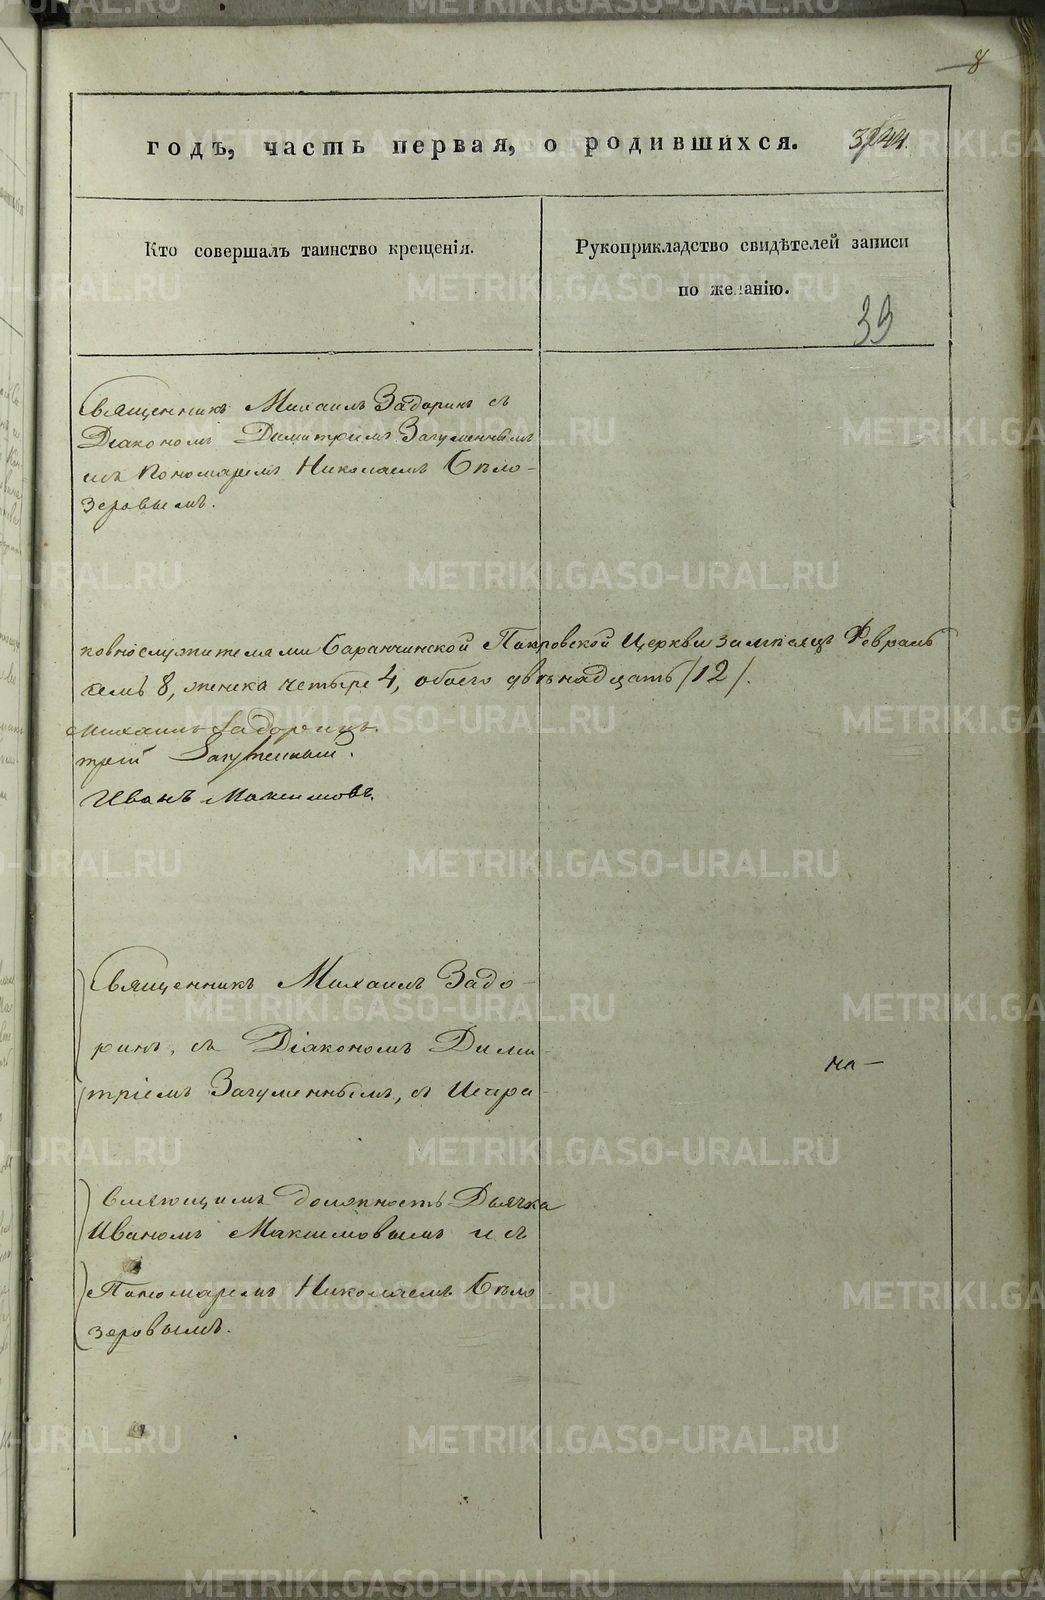 8
годъ, часть первая, о родившихся.
Кто совершалъ таинство крещенія.
Рукоприкладство свидѣтелей записи
по желанію.
39
Священникъ Михаилъ Задоринъ съ
Діакономъ Димитріемъ Загуменнымъ
и съ Пономаремъ Николаемъ Бѣло-
зеровымъ.
ковнослужителями Баранчинской Покровской Церкви за мѣсяцъ Февраль
семь 8, женска четыре 4, обоего двѣнадцать /12/.
Михаилъ Задоринъ.
трій Загуменный.
Иванъ Максимовъ.
Священникъ Михаилъ Задо-
ринъ, съ Діакономъ Дими-
тріемъ Загуменнымъ, съ Испра-
вляющимъ должность Дьячка
Иваномъ Максимовымъ и съ
Пономаремъ Николаемъ Бѣло-
зеровымъ.
на-
METRIKI.GASO-URAL.RU